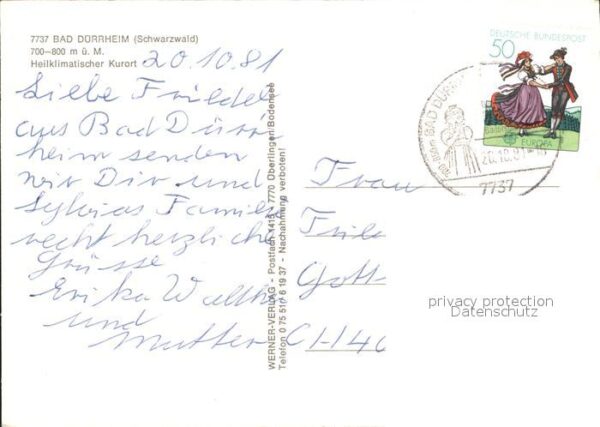 7737 BAD DÜRRHEIM (Schwarzwald)
700–800 m ü. M.
Heilklimatischer Kurort
20.10.81
Liebe Friedel
aus Bad Dürr
heim senden
wir Dir und
Sylvias Familie
recht herzliche
Grüsse
Erika Walther
und
Mutter
WERNER-VERLAG - Postfach 1415 - 7770 Überlingen/Bodensee
Telefon 0 75 51 / 6 19 37 - Nachahmung verboten!
DEUTSCHE BUNDESPOST
50
EUROPA
BAD DÜRR
20.10.81
7737
Frau
Frie
Gott
CH-140
privacy protection
Datenschutz